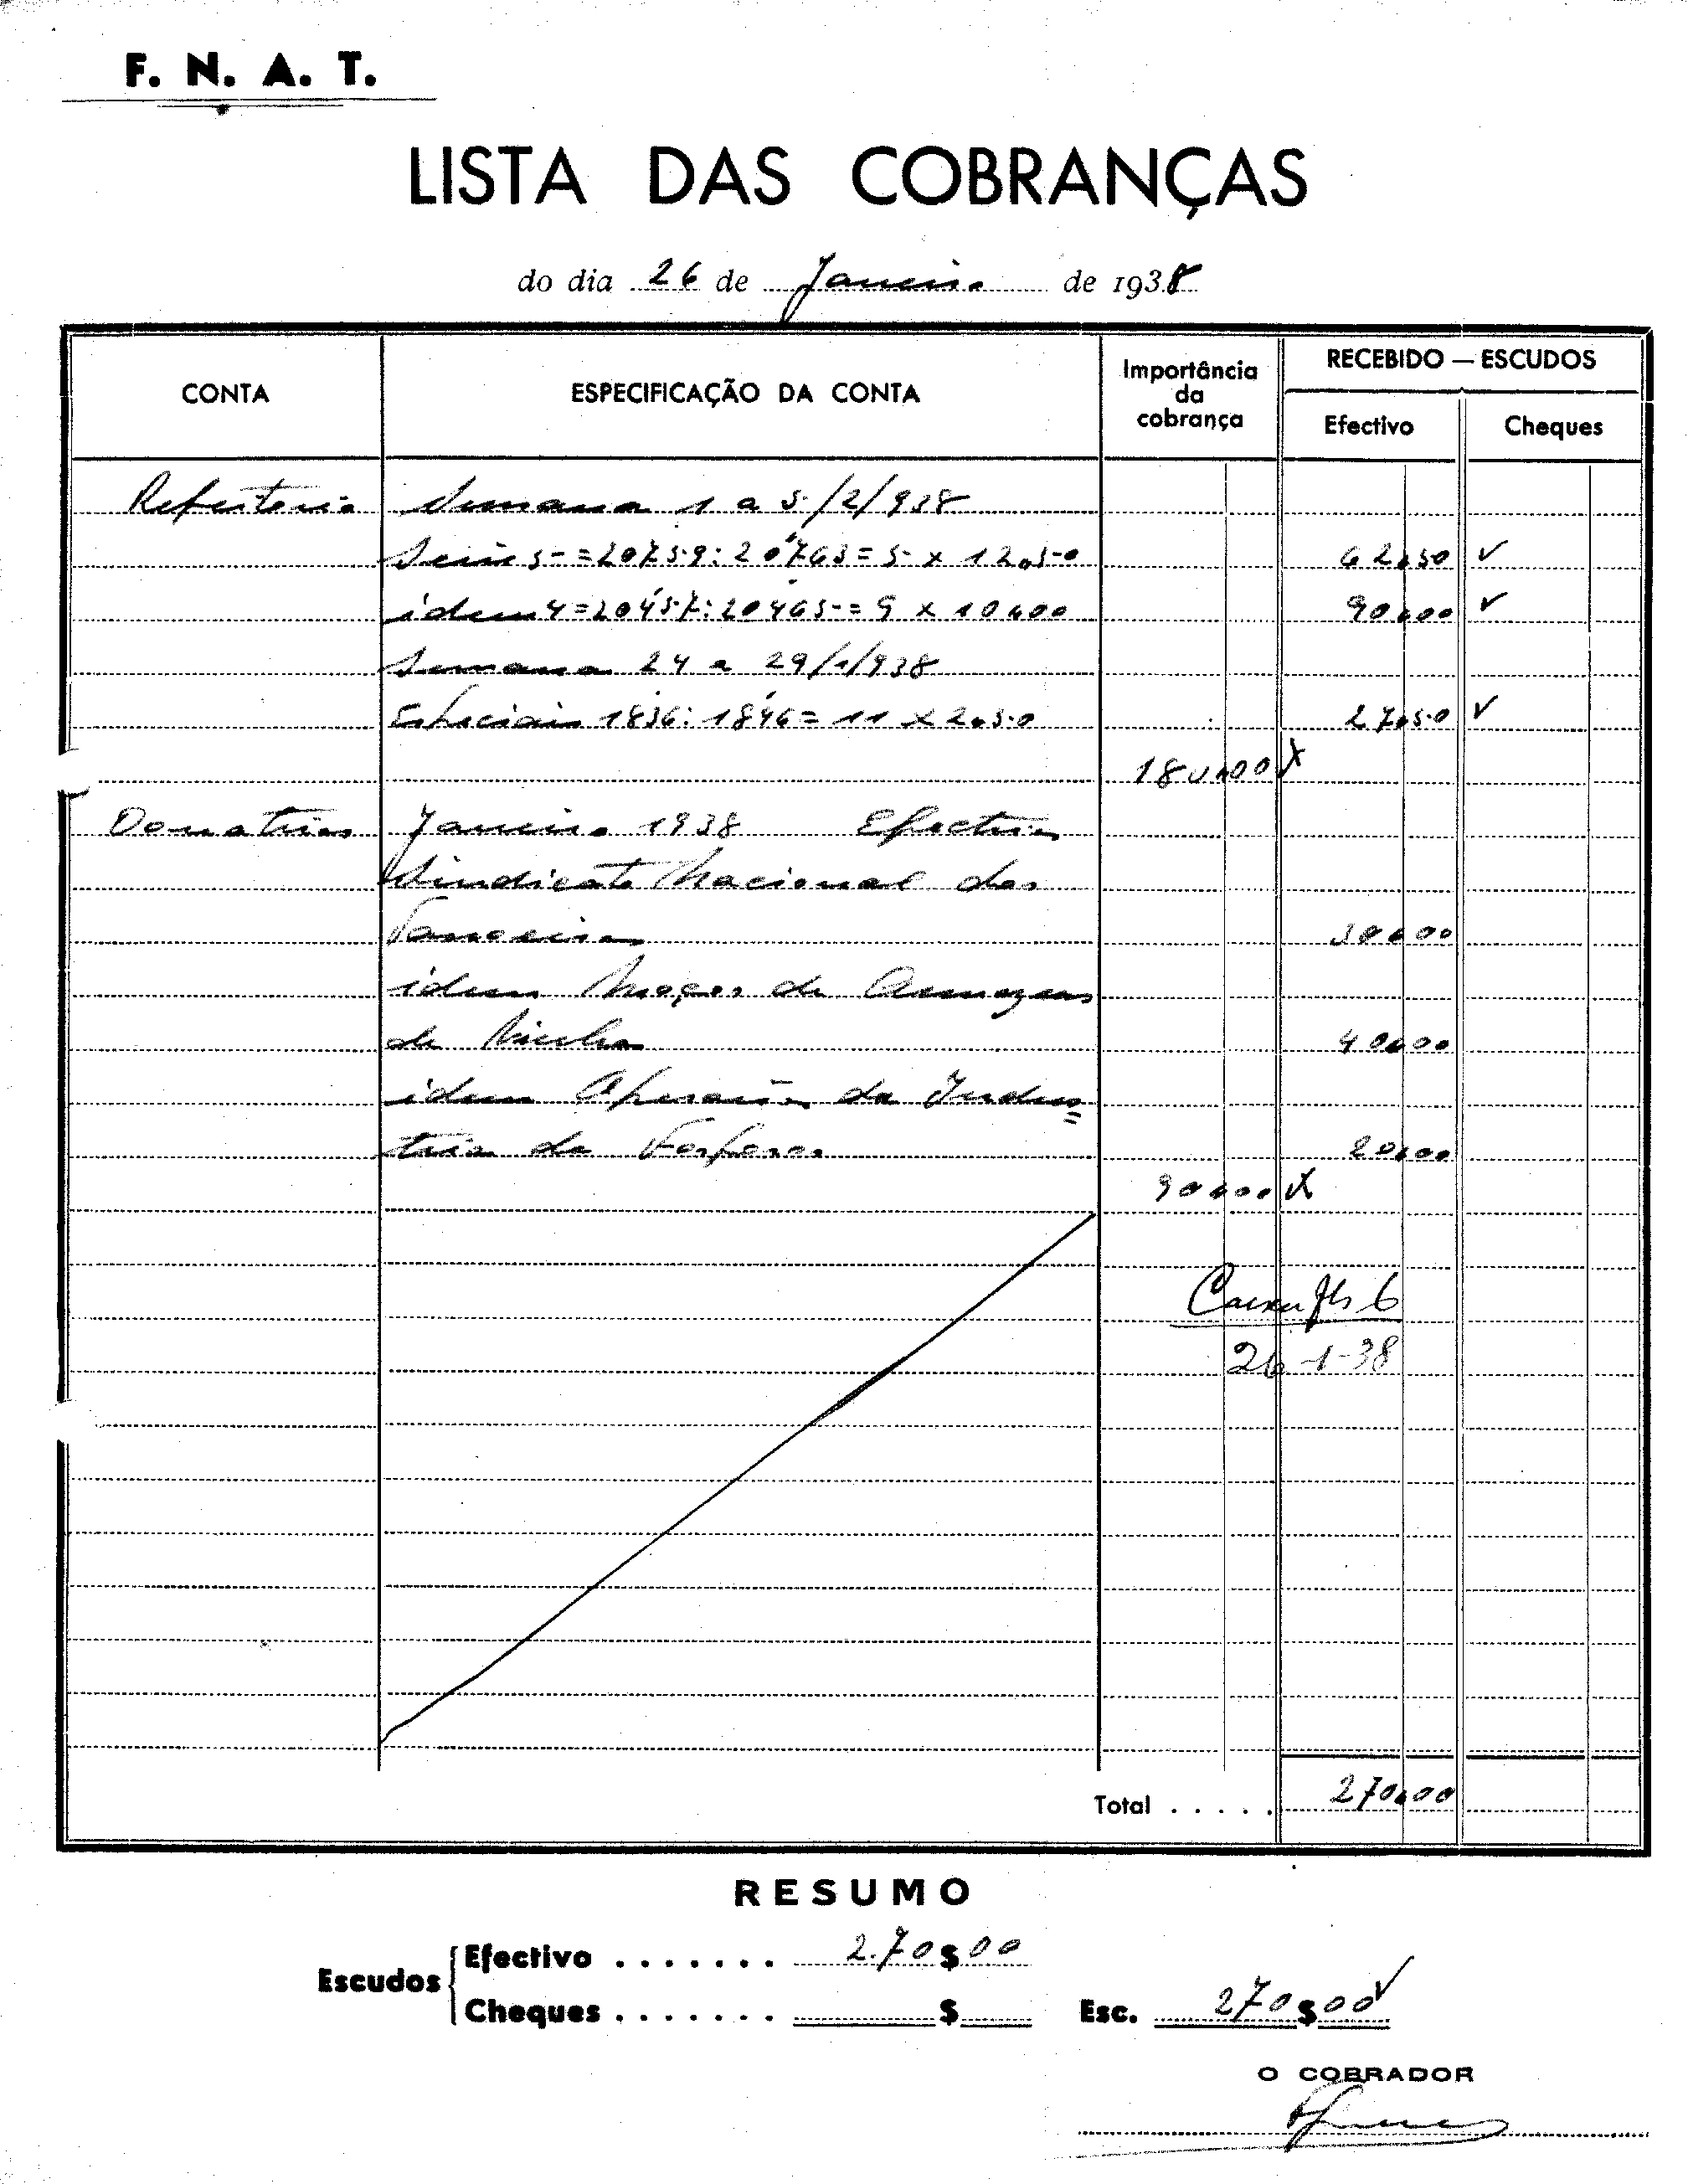 F. N. A. T.
LISTA DAS COBRANÇAS
do dia 26 de Janeiro de 1938
CONTA
ESPECIFICAÇÃO DA CONTA
Importância
da
cobrança
RECEBIDO — ESCUDOS
Efectivo
Cheques
Refeitorio Semana 1 a 5/2/938
5 = 20759: 20763 = 5 x 12$50 62$50 ✓
idem 4 = 20457: 20465 = 9 x 10$00 90$00 ✓
Semana 24 a 29/1/938
Especiais 1836: 1846 = 11 x 2$50 27$50 ✓
180$00 X
Donativos Janeiro 1938 Efectivos
Sindicato Nacional dos
Tanoeiros 30$00
idem Moços de Armazens
de Vinho 40$00
idem Operarios da Indus=
tria de Fosforos 20$00
90$00 X
Caixa fls 6
26-1-38
Total ..... 270$00
RESUMO
Escudos
Efectivo ....... 270$00
Cheques ....... $
Esc. 270$00 ✓
O COBRADOR